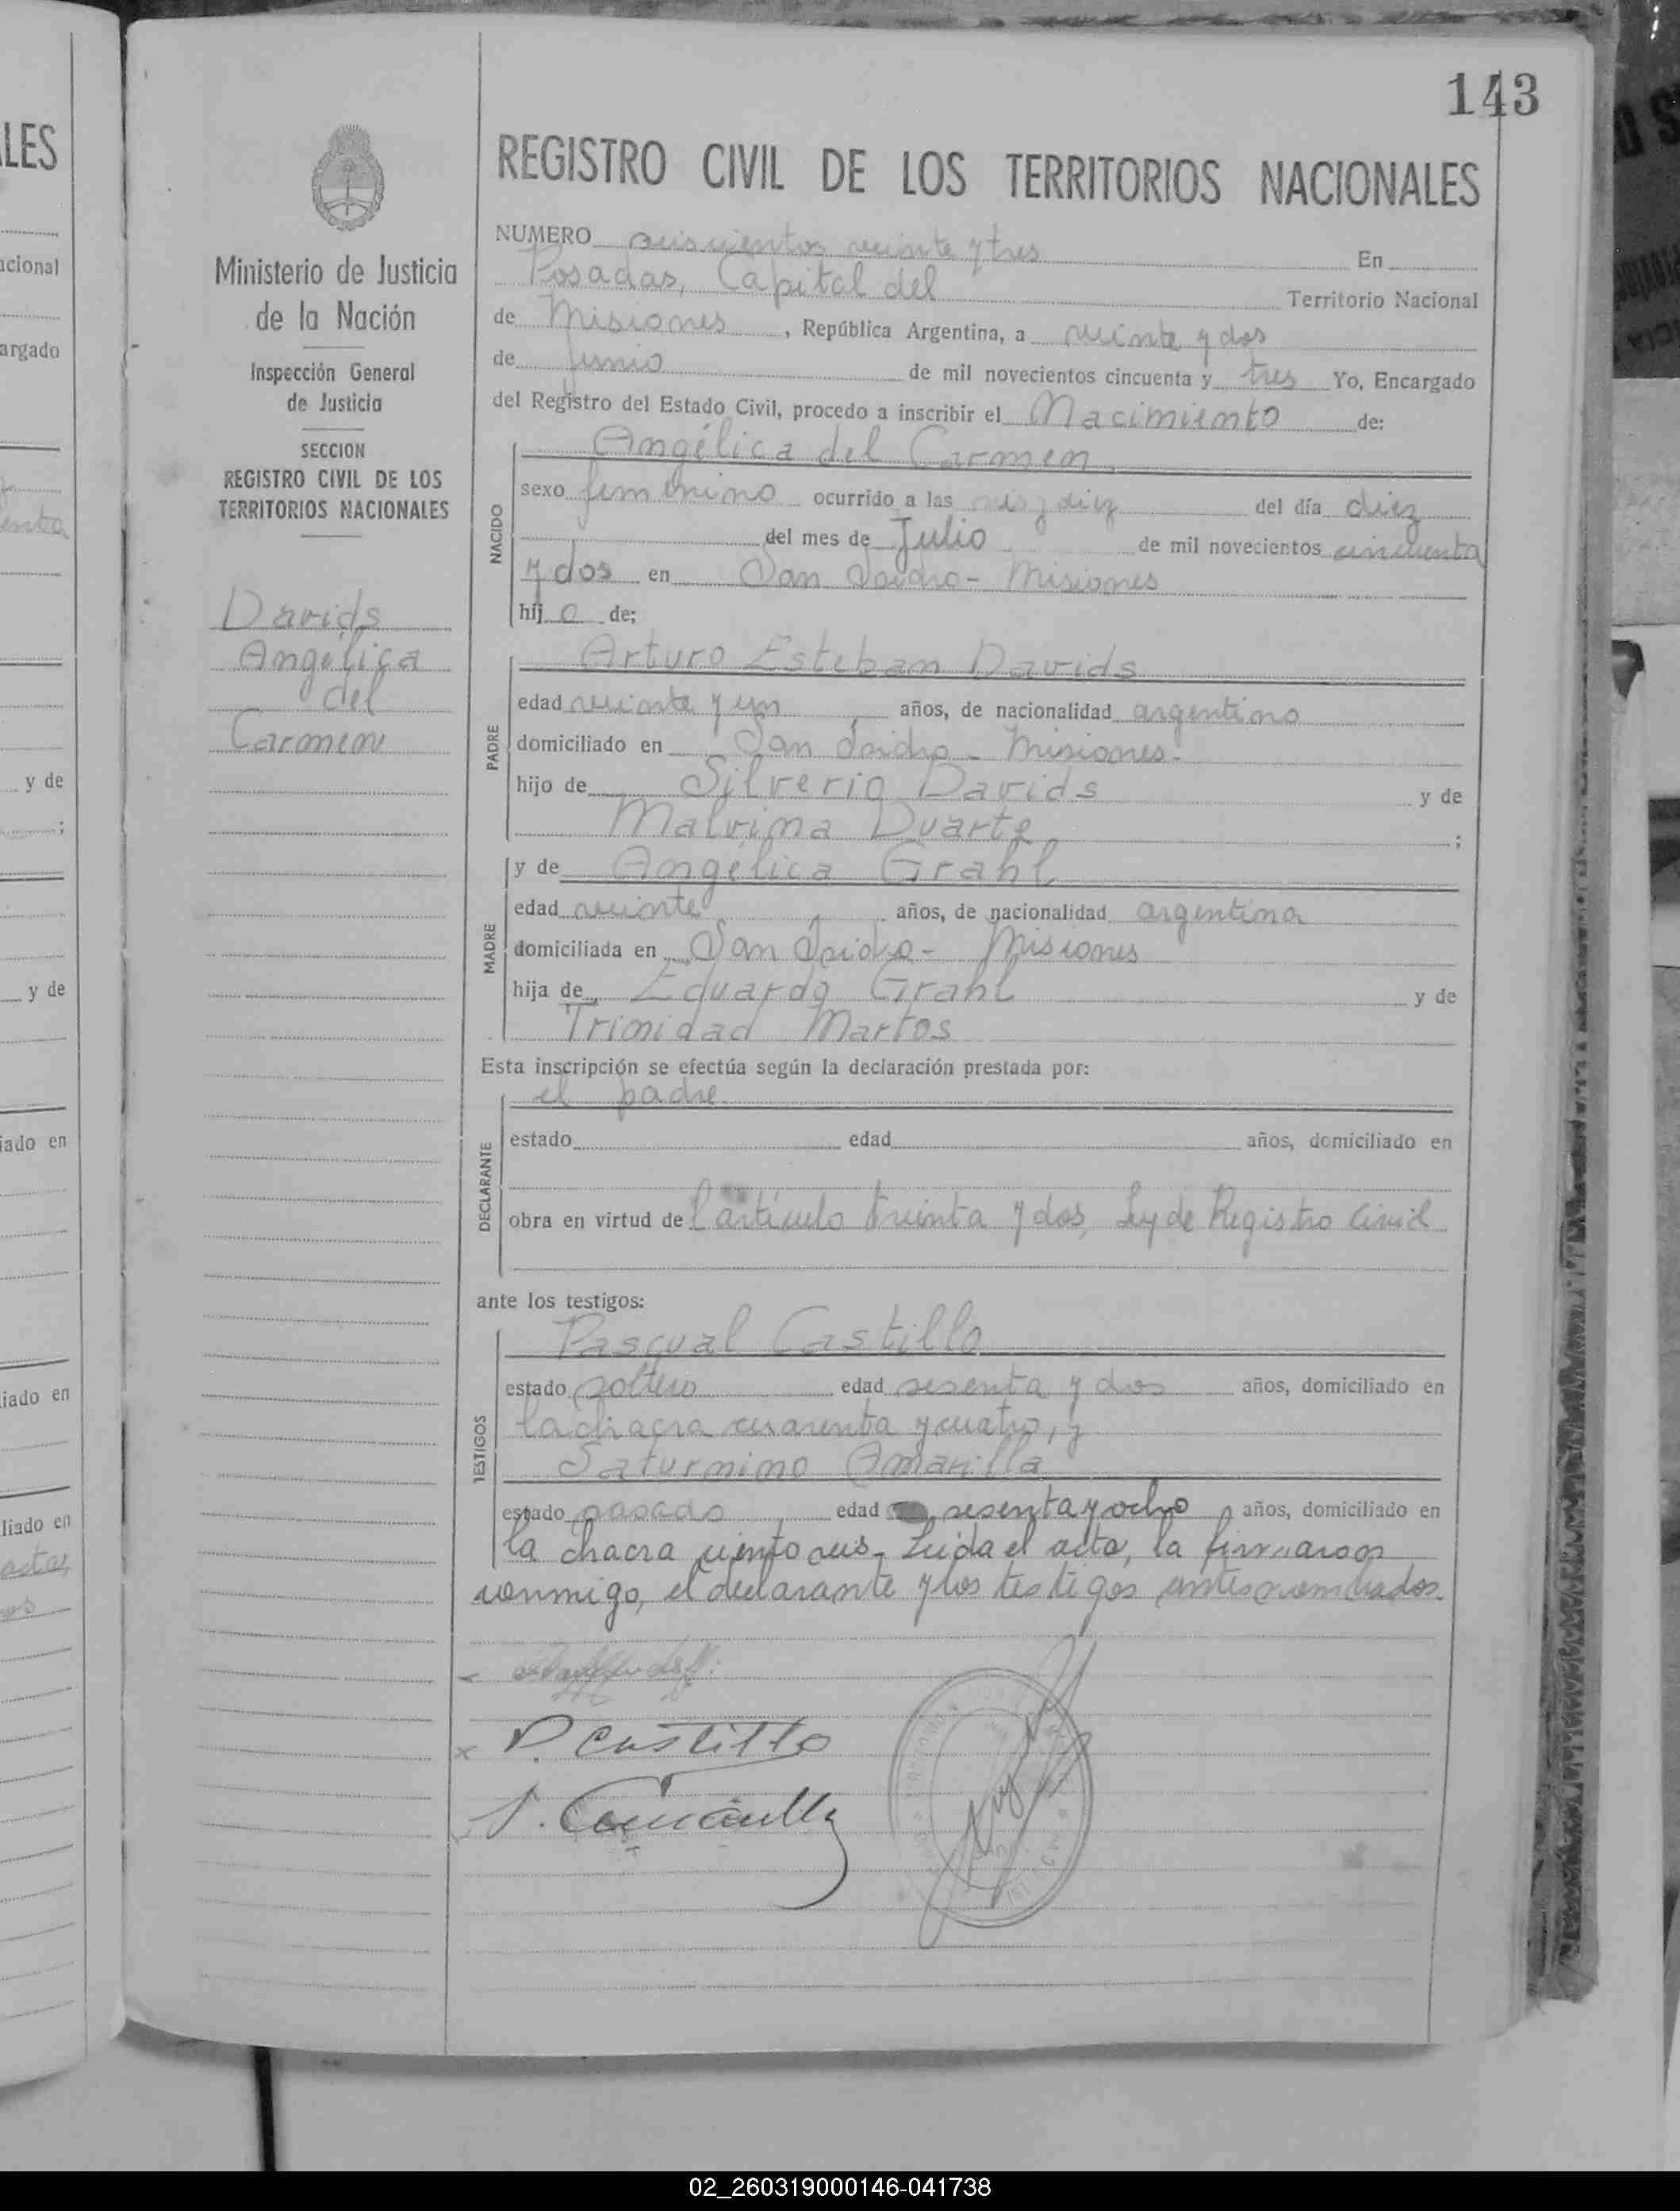 143
REGISTRO CIVIL DE LOS TERRITORIOS NACIONALES
Ministerio de Justicia
de la Nación
Inspección General
de Justicia
SECCION
REGISTRO CIVIL DE LOS
TERRITORIOS NACIONALES
Davids
Angélica
del
Carmen
NUMERO seiscientos veinte y tres En
Posadas, Capital del Territorio Nacional
de Misiones, República Argentina, a veinte y dos
de Junio de mil novecientos cincuenta y tres Yo, Encargado
del Registro del Estado Civil, procedo a inscribir el Nacimiento de:
NACIDO
Angélica del Carmen
sexo femenino ocurrido a las seis y diez del día diez
del mes de Julio de mil novecientos cincuenta
y dos en San Isidro - Misiones
hij a de;
PADRE
Arturo Esteban Davids
edad veinte y un años, de nacionalidad argentino
domiciliado en San Isidro - Misiones -
hijo de Silverio Davids y de
Malvina Duarte ;
MADRE
y de Angélica Grahl
edad veinte años, de nacionalidad argentina
domiciliada en San Isidro - Misiones
hija de Eduardo Grahl y de
Trinidad Martos
Esta inscripción se efectúa según la declaración prestada por:
DECLARANTE
el padre
estado edad años, domiciliado en
obra en virtud del artículo treinta y dos, Ley de Registro Civil
ante los testigos:
TESTIGOS
Pascual Castillo
estado soltero edad sesenta y dos años, domiciliado en
la chacra cuarenta y cuatro, y
Saturnino Amarilla
estado casado edad sesenta y ocho años, domiciliado en
la chacra ciento seis - Leida el acta, la firmaron
conmigo, el declarante y los testigos antes nombrados.
P. Castillo
S. Amarilla
LES
acional
argado
y de
;
y de
iado en
iado en
liado en
02_260319000146-041738